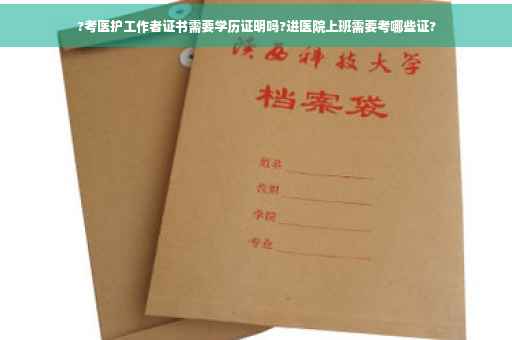 ?考医护工作者证书需要学历证明吗?进医院上班需要考哪些证?
陕西科技大学
档案袋
姓名
性别
学院
专业